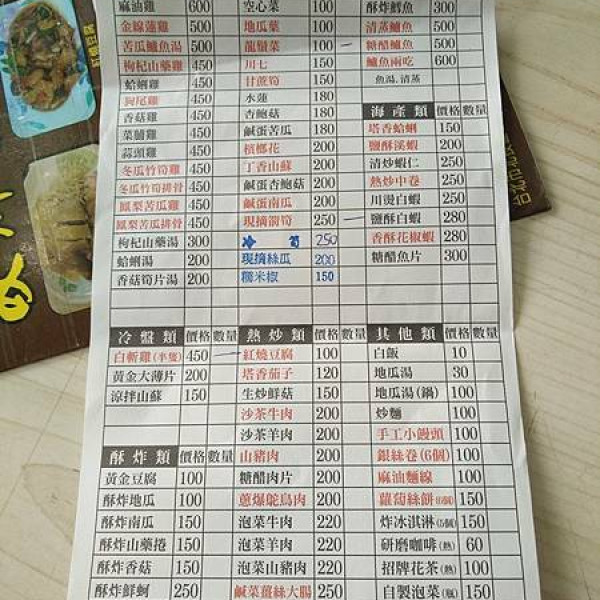 麻油雞 600 空心菜 100 酥炸鱈魚 300
金線蓮雞 500 地瓜葉 100 清蒸鱸魚 500
苦瓜鱸魚湯 500 龍鬚菜 100 糖醋鱸魚 500
枸杞山藥雞 450 川七 150 鱸魚兩吃 600
蛤蜊雞 450 甘蔗筍 150 魚湯.清蒸
狗尾雞 450 水蓮 180
香菇雞 450 杏鮑菇 180 海產類 價格 數量
菜脯雞 450 鹹蛋苦瓜 180 塔香蛤蜊 150
蒜頭雞 450 檳榔花 200 鹽酥溪蝦 200
冬瓜竹筍雞 450 丁香山蘇 200 清炒蝦仁 250
冬瓜竹筍排骨 450 鹹蛋杏鮑菇 200 熱炒中卷 250
鳳梨苦瓜雞 450 鹹蛋南瓜 200 川燙白蝦 250
鳳梨苦瓜排骨 450 現摘箭筍 250 鹽酥白蝦 280
枸杞山藥湯 300 冷筍 250 香酥花椒蝦 280
蛤蜊湯 200 現摘絲瓜 200 糖醋魚片 300
香菇筍片湯 200 糯米椒 150
冷盤類 價格 數量 熱炒類 價格 數量 其他類 價格 數量
白斬雞(半隻) 450 紅燒豆腐 100 白飯 10
黃金大薄片 200 塔香茄子 120 地瓜湯 30
涼拌山蘇 150 生炒鮮菇 150 地瓜湯(鍋) 100
沙茶牛肉 200 炒麵 100
沙茶羊肉 200 手工小饅頭 100
酥炸類 價格 數量 山豬肉 200 銀絲卷(6個) 100
黃金豆腐 100 糖醋肉片 200 麻油麵線 100
酥炸地瓜 100 蔥爆鴕鳥肉 200 蘿蔔絲餅(6個) 150
酥炸南瓜 150 泡菜牛肉 220 炸冰淇淋(5個) 150
酥炸山藥捲 150 泡菜羊肉 220 研磨咖啡(熱) 60
酥炸香菇 150 泡菜山豬肉 220 招牌花茶(熱) 100
酥炸鮮蚵 250 鹹菜薑絲大腸 250 自製泡菜(瓶) 150